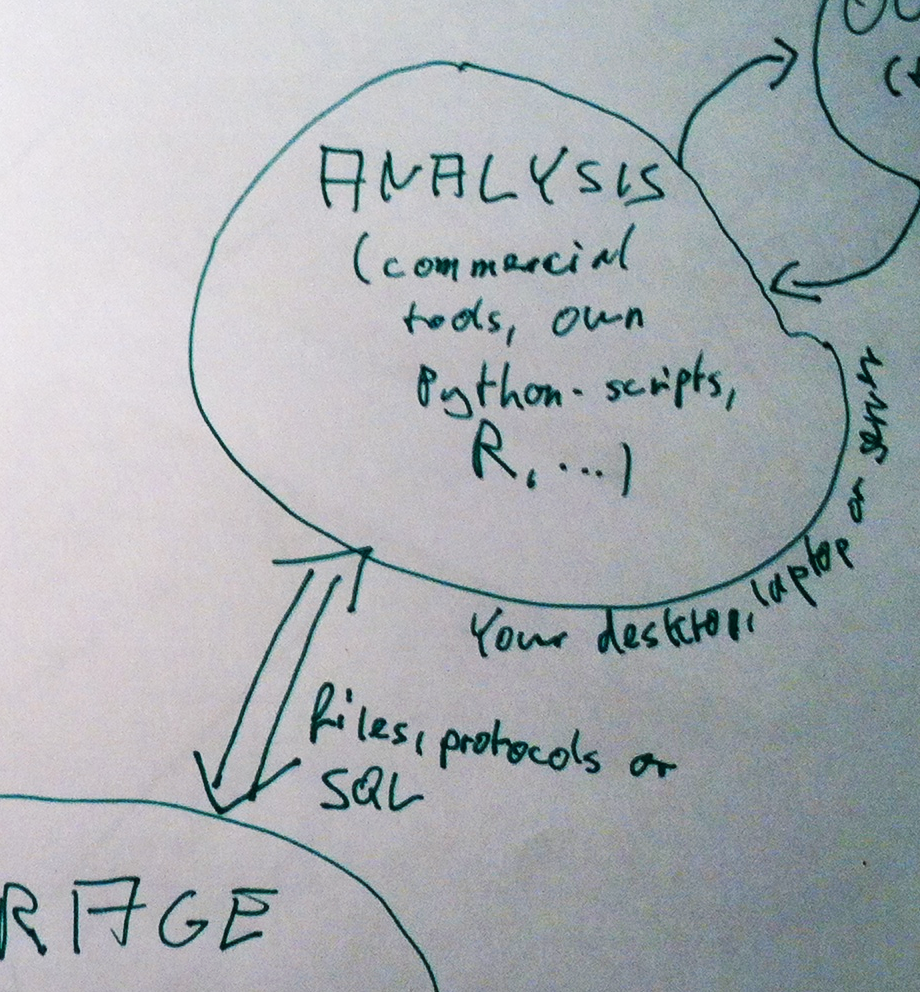 ANALYSIS
(commercial
tools, own
Python-scripts,
R, ...)
Your desktop, laptop or server
files, protocols or
SQL
RAGE